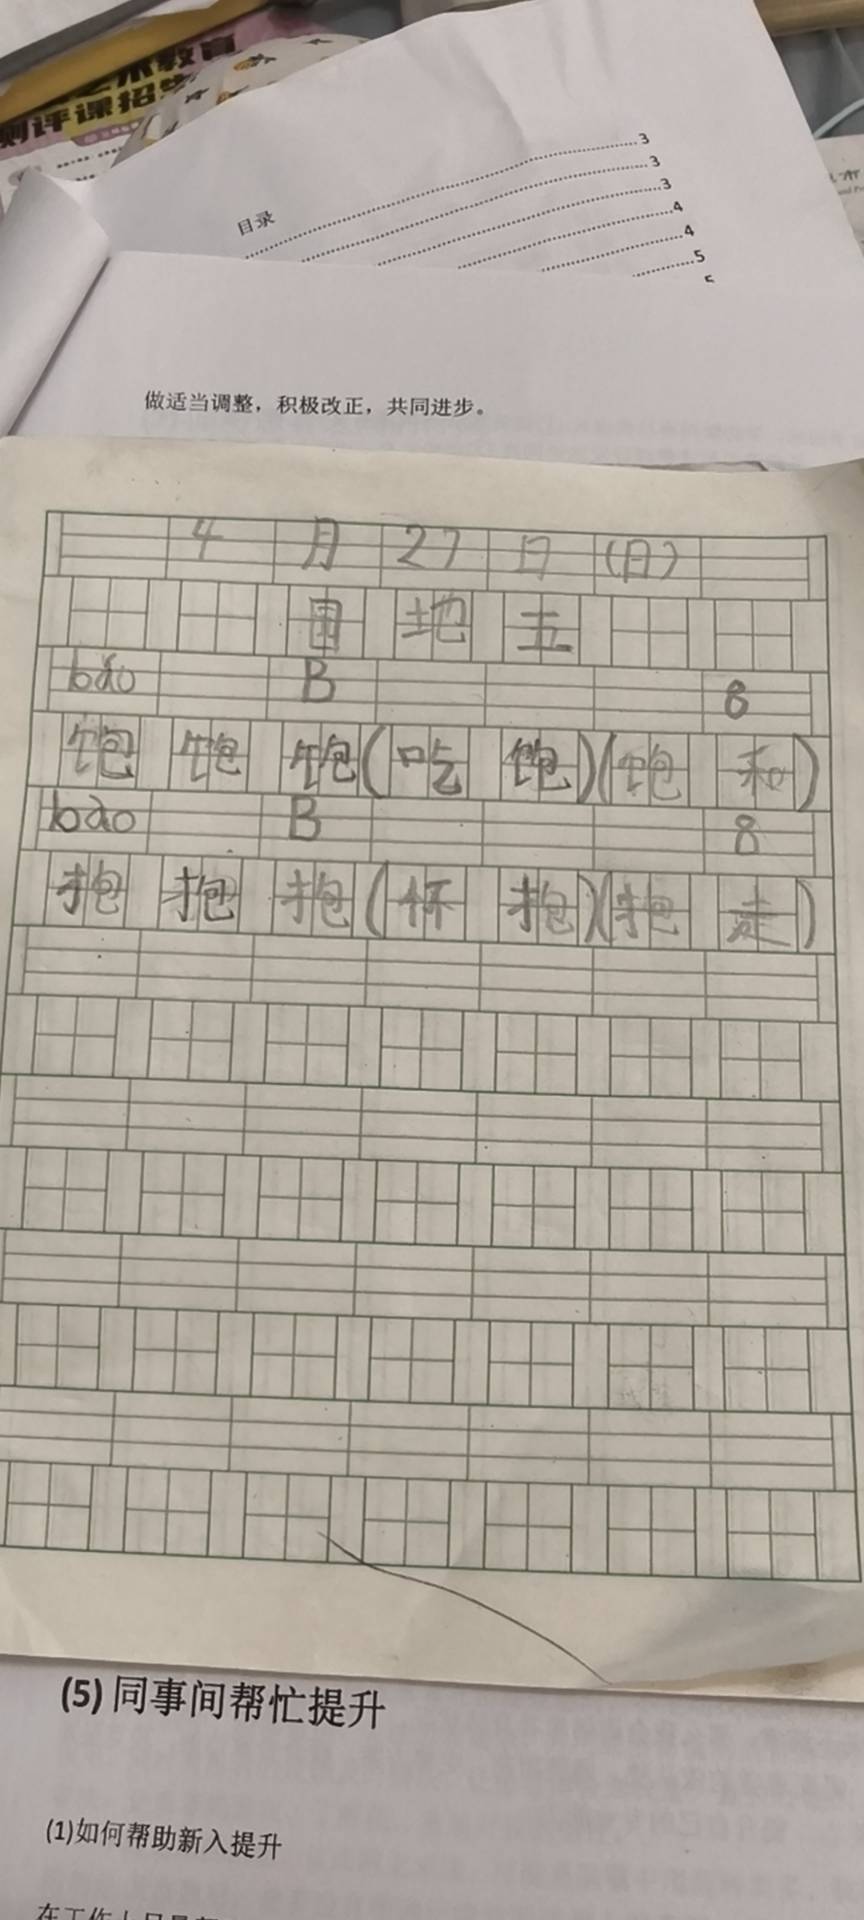 术教育
测评课招生
目录
3
3
3
4
4
5
做适当调整，积极改正，共同进步。
4月27日(日)
国地五
bǎo B 8
饱饱饱(吃饱)(饱和)
bào B 8
抱抱抱(怀抱)(抱走)
(5)同事间帮忙提升
(1)如何帮助新入提升